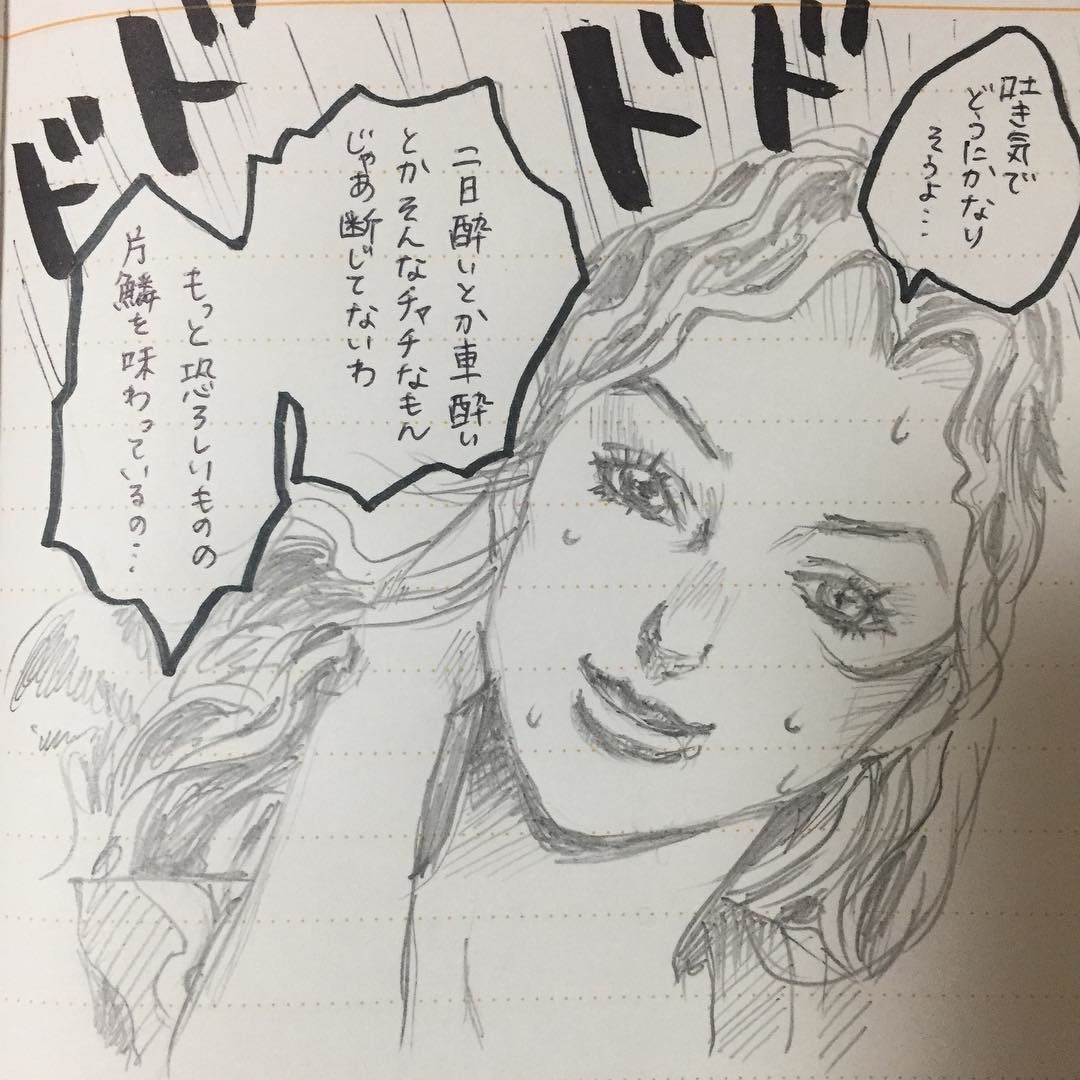 吐き気で
どうにかなり
そうよ…
二日酔いとか車酔い
とかそんなチャチなもん
じゃあ断じてないわ
もっと恐ろしいものの
片鱗を味わっているの…
ド
ド
ド
ド